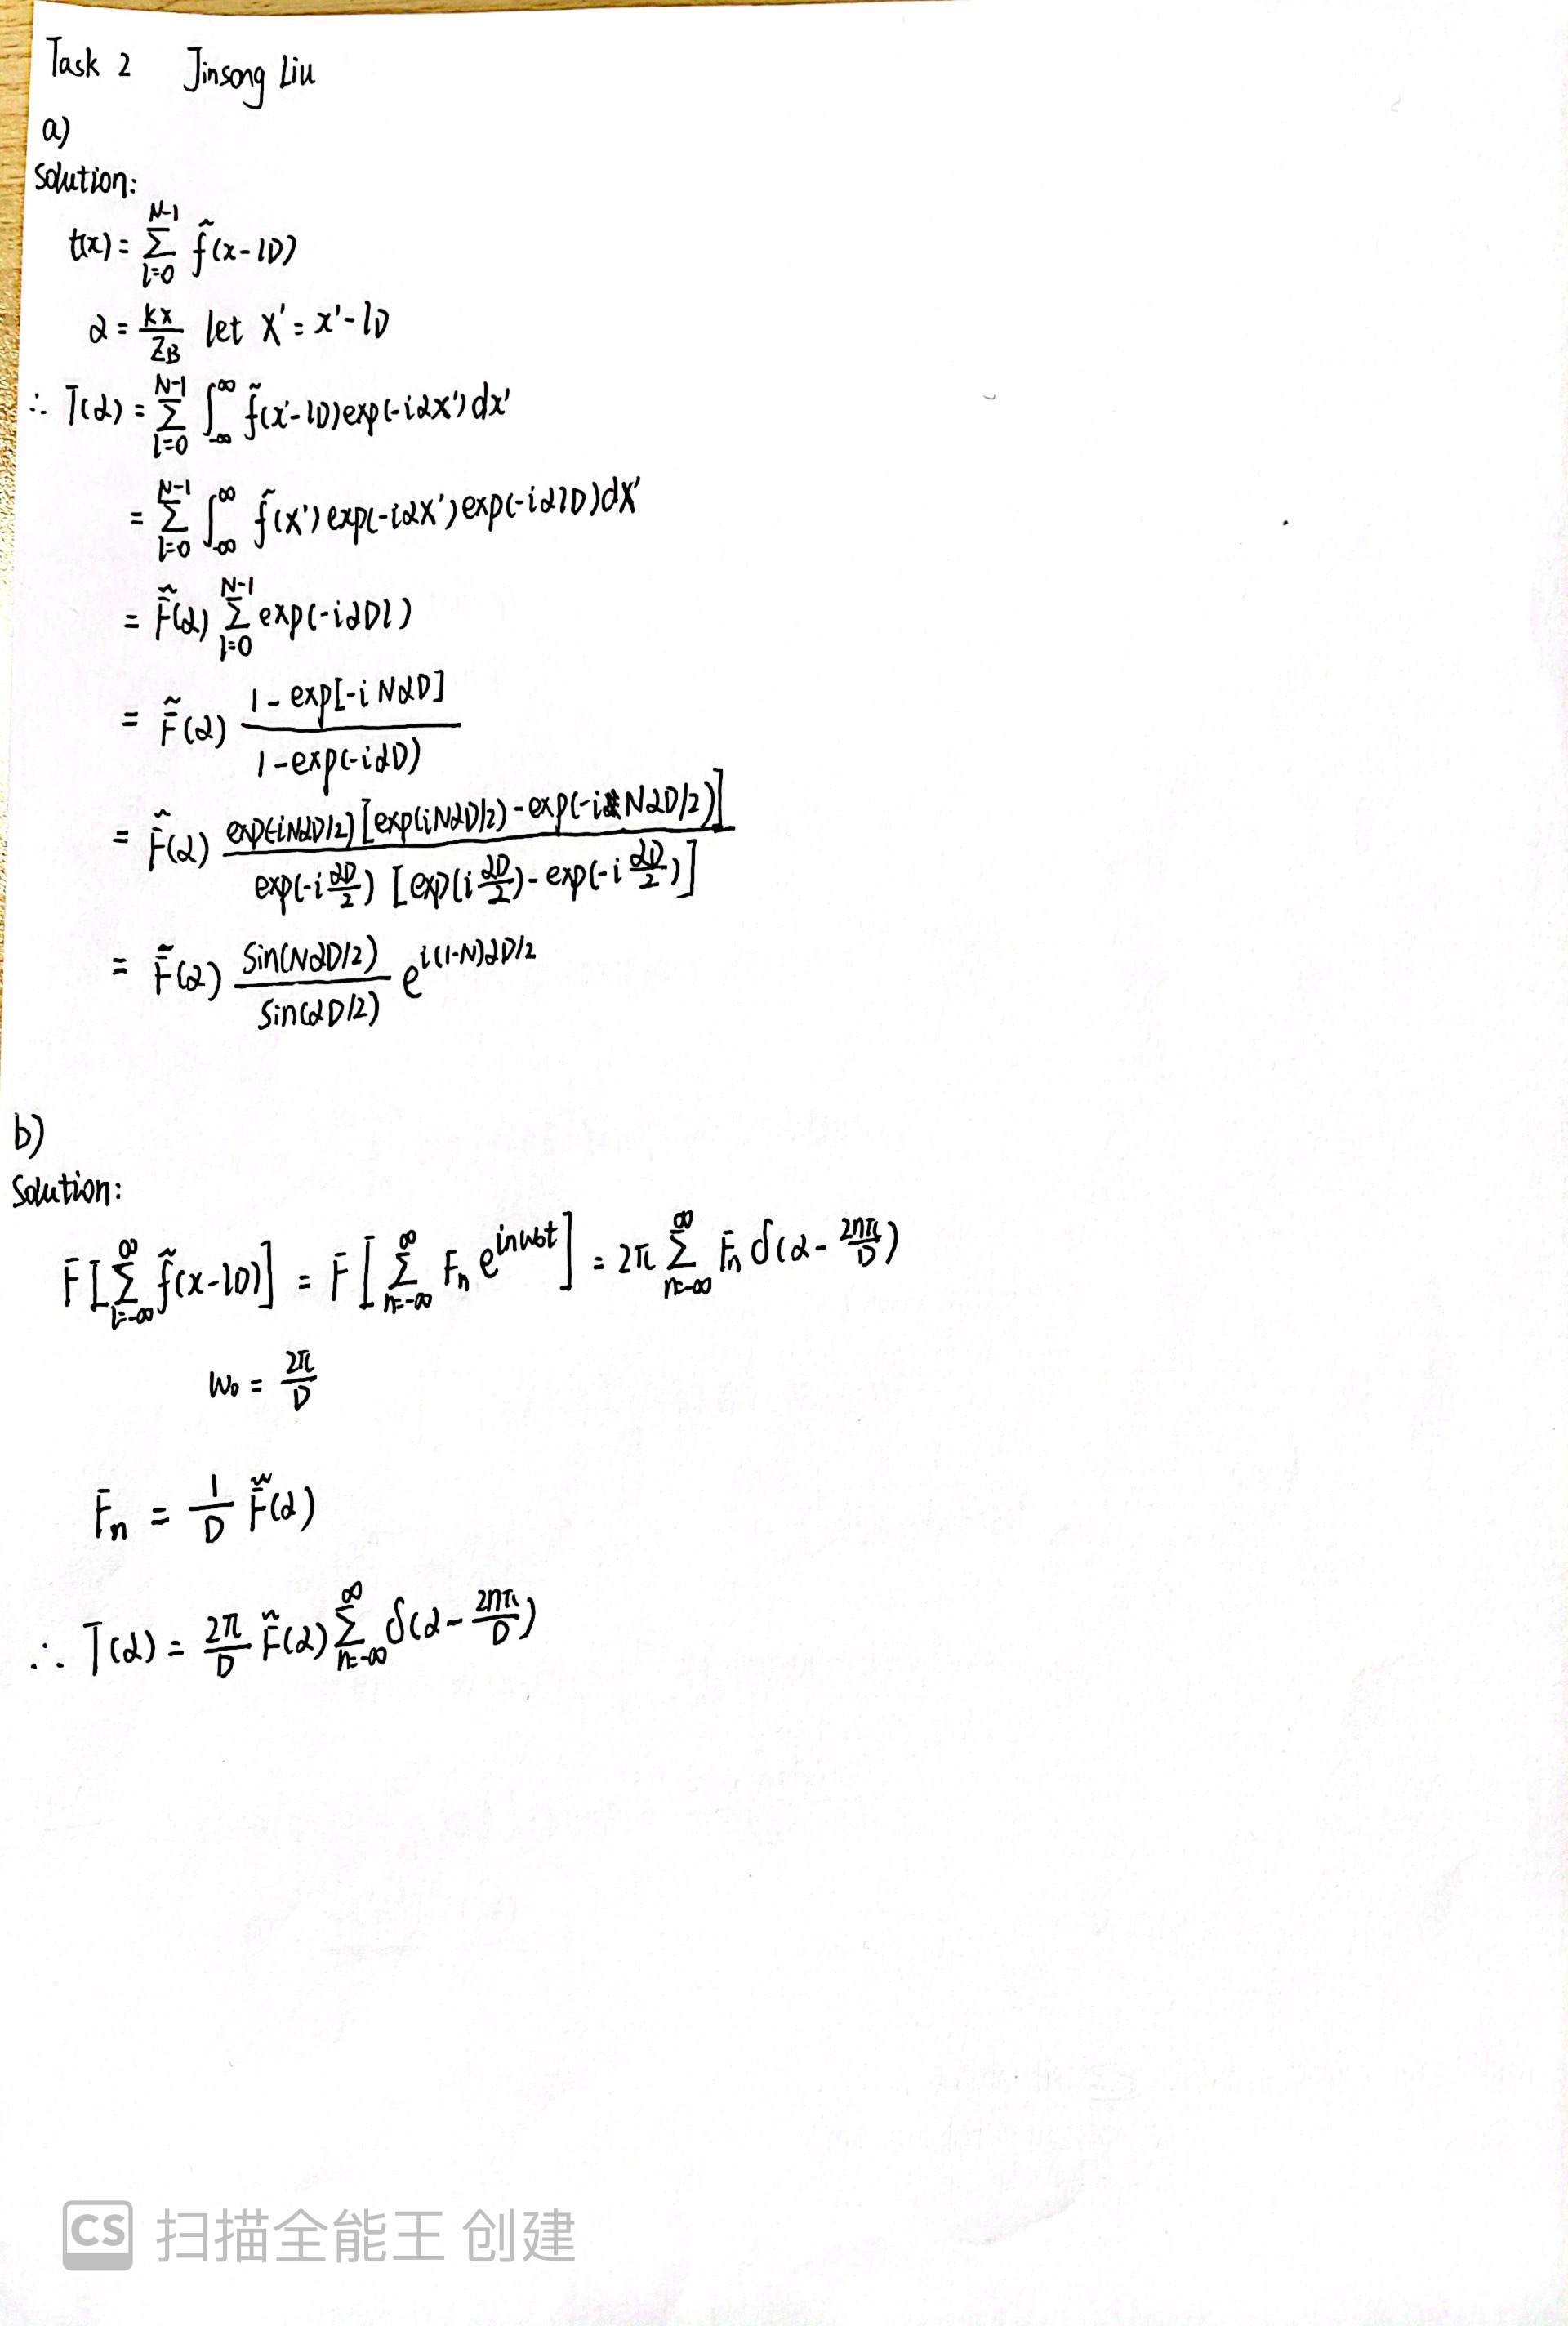 Task 2 Jinsong Liu
a)
Solution:
t(x) = \sum_{l=0}^{N-1} \tilde{f}(x-lD)
α = \frac{kx}{Z_B} let X' = x'-lD
∴ T(α) = \sum_{l=0}^{N-1} \int_{-∞}^{∞} \tilde{f}(x'-lD) exp(-iαx') dx'
= \sum_{l=0}^{N-1} \int_{-∞}^{∞} \tilde{f}(X') exp(-iαX') exp(-iαlD) dX'
= \tilde{F}(α) \sum_{l=0}^{N-1} exp(-iαDl)
= \tilde{F}(α) \frac{1-exp[-iNαD]}{1-exp(-iαD)}
= \tilde{F}(α) \frac{exp(-iNαD/2) [exp(iNαD/2) - exp(-iNαD/2)]}{exp(-i\frac{αD}{2}) [exp(i\frac{αD}{2}) - exp(-i\frac{αD}{2})]}
= \tilde{F}(α) \frac{Sin(NαD/2)}{Sin(αD/2)} e^{i(1-N)αD/2}
b)
Solution:
F[\sum_{l=-∞}^{∞} \tilde{f}(x-lD)] = F[\sum_{n=-∞}^{∞} F_n e^{inw_0t}] = 2π \sum_{n=-∞}^{∞} F_n δ(α-\frac{2nπ}{D})
w_0 = \frac{2π}{D}
F_n = \frac{1}{D} \tilde{F}(α)
∴ T(α) = \frac{2π}{D} \tilde{F}(α) \sum_{n=-∞}^{∞} δ(α-\frac{2nπ}{D})
CS 扫描全能王 创建